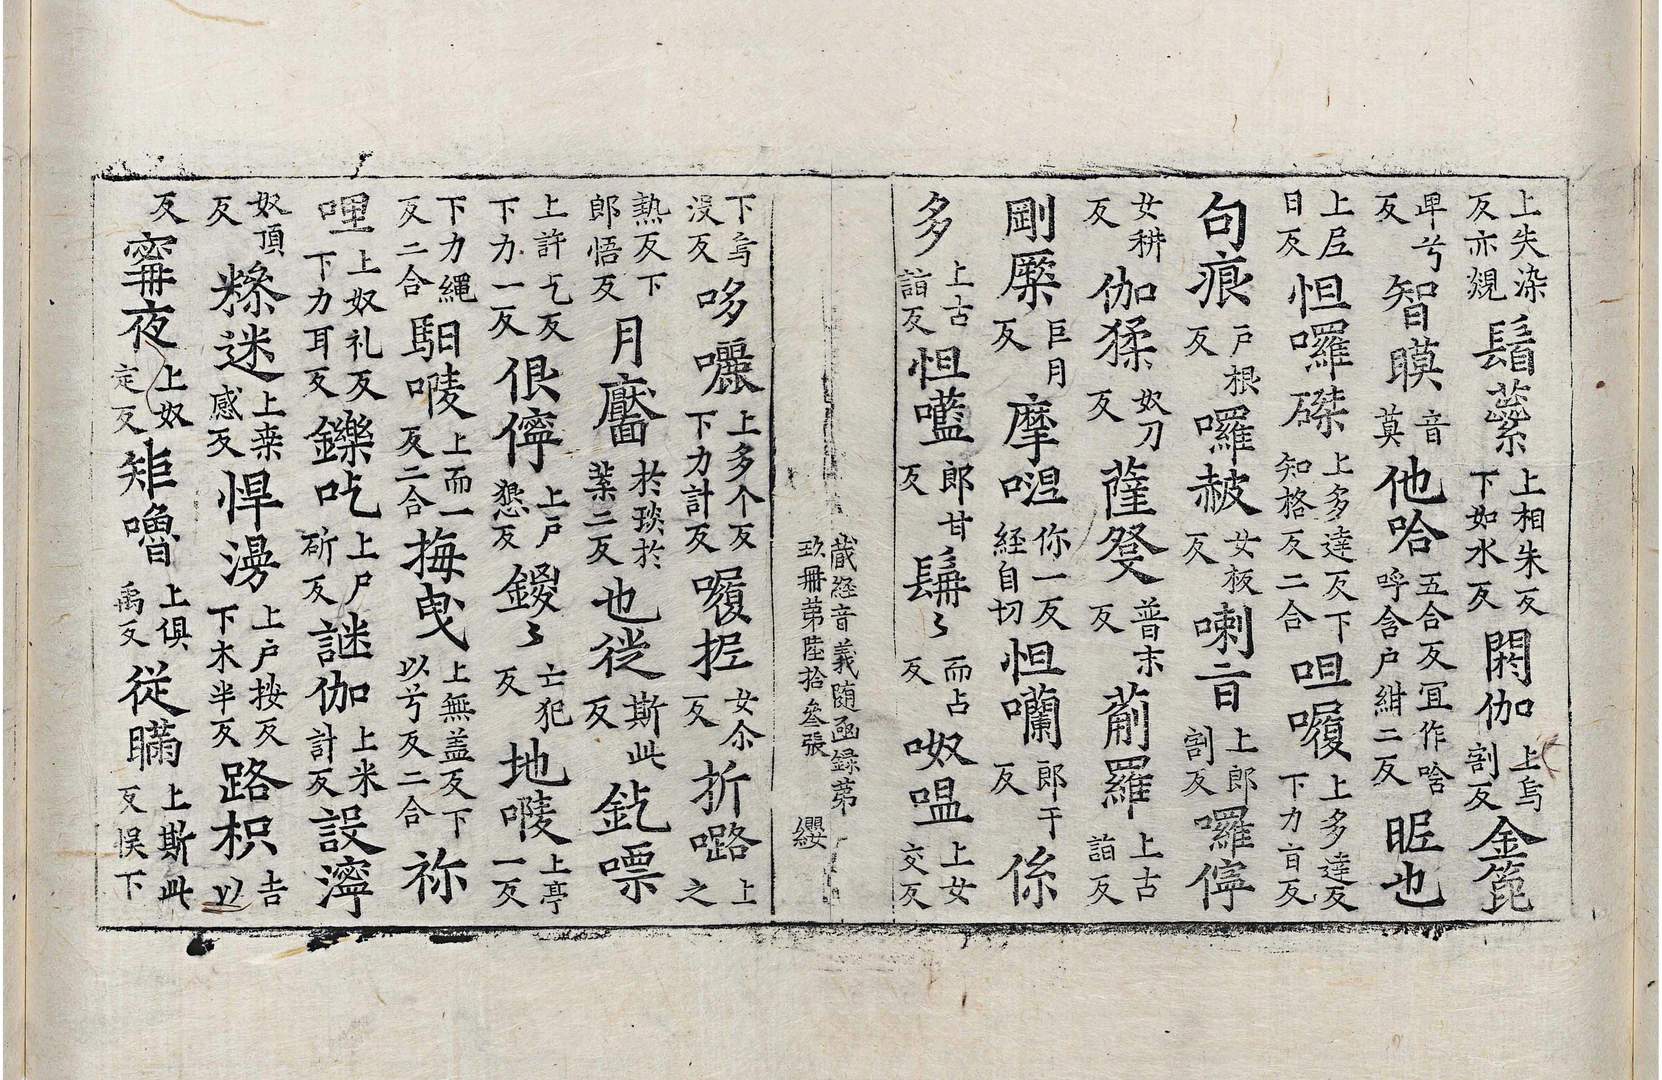 上失染反亦覢鬚蘂上相朱反下如水反閼伽上烏割反金箆
卑兮反智瞙音莫他哈五合反冝作啥呼含戶紺二反眤也
上𡰱日反怛囉磔上多達反下知格反二合呾㘑上多達反下力亯反
句痕戶根反囉赧女板反喇亯上郎割反囉儜
女耕反伽猱奴刀反薩癹普末反葪羅上古詣反
剛厥巨月反摩㘿你一反経自切怛囒郎干反係
多上古詣反怛㘕郎甘反髯〻而占反呶嗢上女交反
蔵経音義随函録第玖冊第陸拾叄張 纓
下烏没反哆囇上多个反下力計反㘑抳女尒反折嚕上之
熱反下郎悟反月靨扵琰扵葉二反也徙斯此反釳嘌
上許乞反下力一反佷儜上戶懇反鑁〻亡犯反地㖫上亭一反
下力繩反二合馹㖫上而一反二合拇曵上無盖反下以兮反二合祢
哩上奴礼反下力耳反鑠吃上戶斫反謎伽上米計反設濘
奴頂反粽迷上桒感反悍湯上戶按反下木半反路枳吉以
反寗夜上奴定反矩嚕上俱禹反従瞞上斯此反悞下